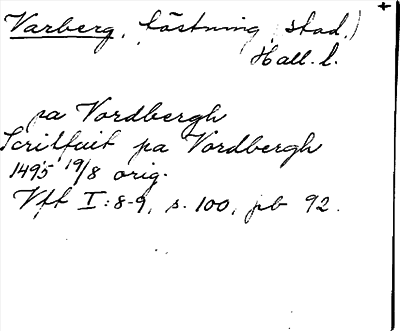 Varberg, fästning (stad.)
Hall. l.
pa Vordbergh
Scriffuit pa Vordbergh
1495 19/8 orig.
Vft I: 8-9, s. 100, pb 92.